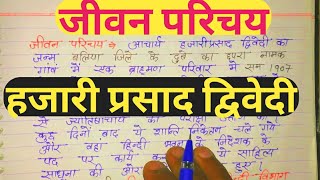 जीवन परिचय
जीवन परिचय → आचार्य हजारी प्रसाद द्विवेदी का
जन्म बलिया जिले के दुबे का छपरा नामक
गांव में एक ब्राह्मण परिवार में सन् 1907
हजारी प्रसाद द्विवेदी
से ज्योतिषाचार्य
कुछ दिनों बाद ये शान्ति निकेतन चले गये
और वहां हिन्दी के निदेशक के
पद पर कार्य ये साहित्य
साधना की ओर